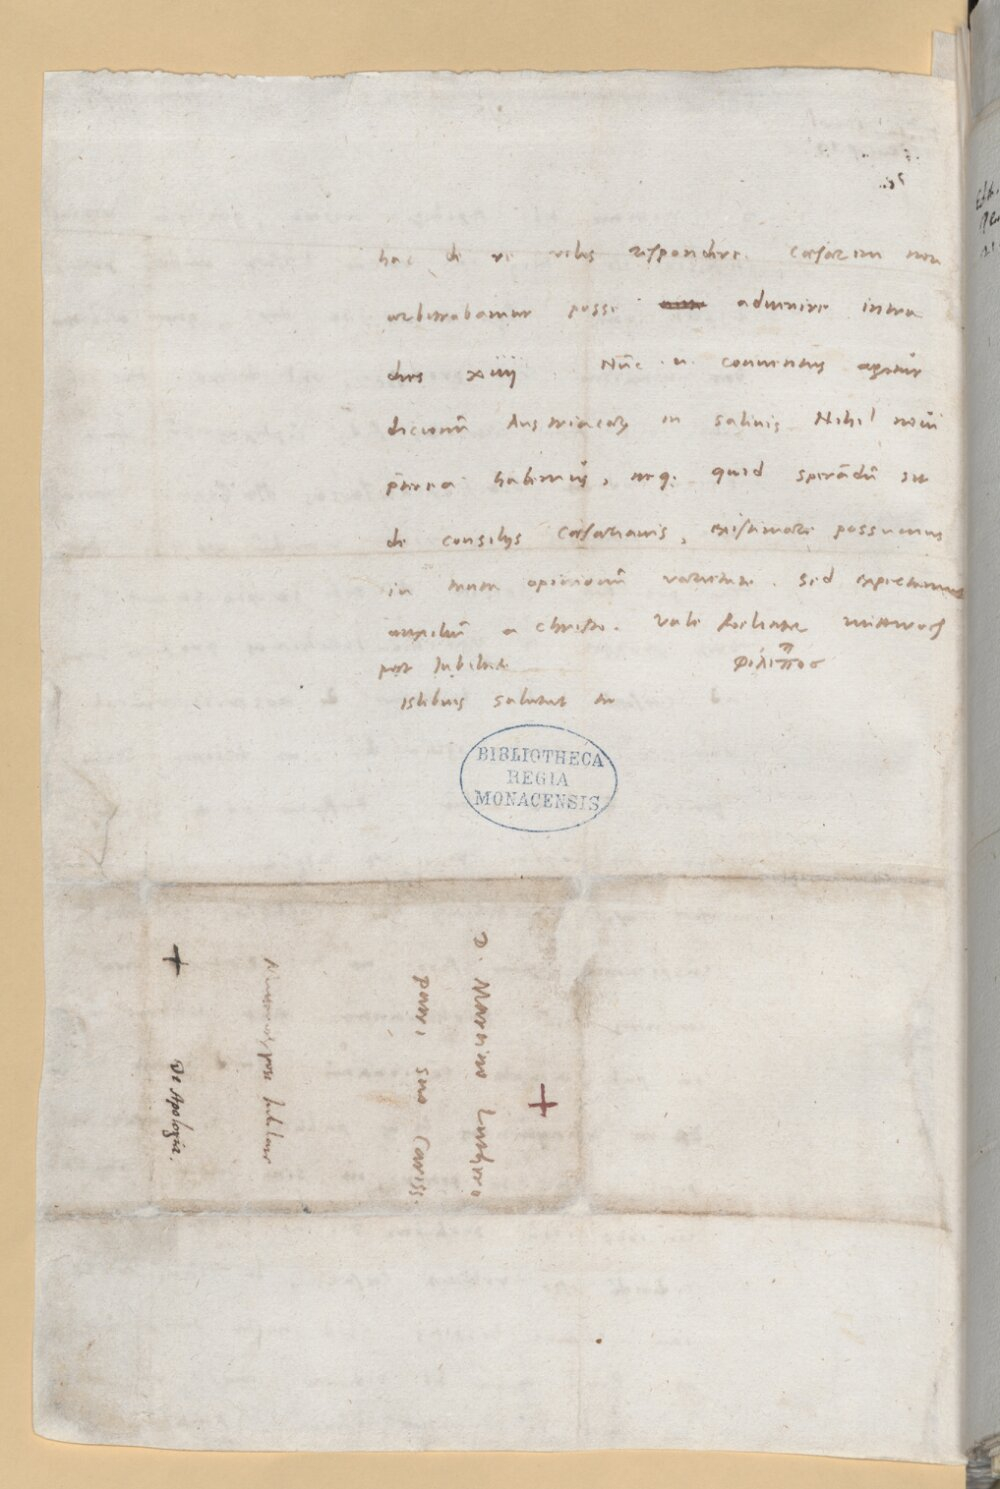 hac de re velis respondere. Cæsarem non
arbitrabamur posse advenire intra
dies xiiij. Nūc .n. conventus agitur
dicionū Austriacaꝝ in salinis Nihil novi
p̄terea habemus, neq; quid sperādū sit
de consilijs Cæsarianis, existimare possumus
in tanta opinionū varietate. Sed expectamus
auxiliū a Christo. Vale feliciter mittwoch
post Jubilate φίλιππος
Islebius salutat te
BIBLIOTHECA
REGIA
MONACENSIS
D. Martino Luthero
patri suo Cariss.
post Jubilate
De Apologia.